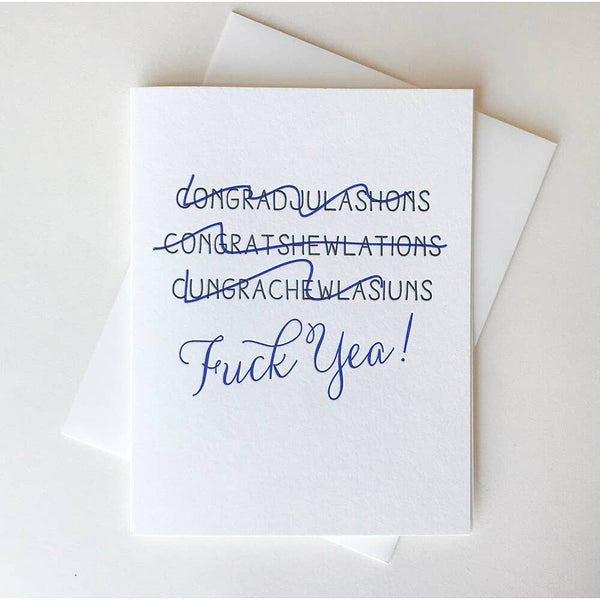 CONGRADJULASHONS
CONGRATSHEWLATIONS
CUNGRACHEWLASIUNS
Fuck Yea!